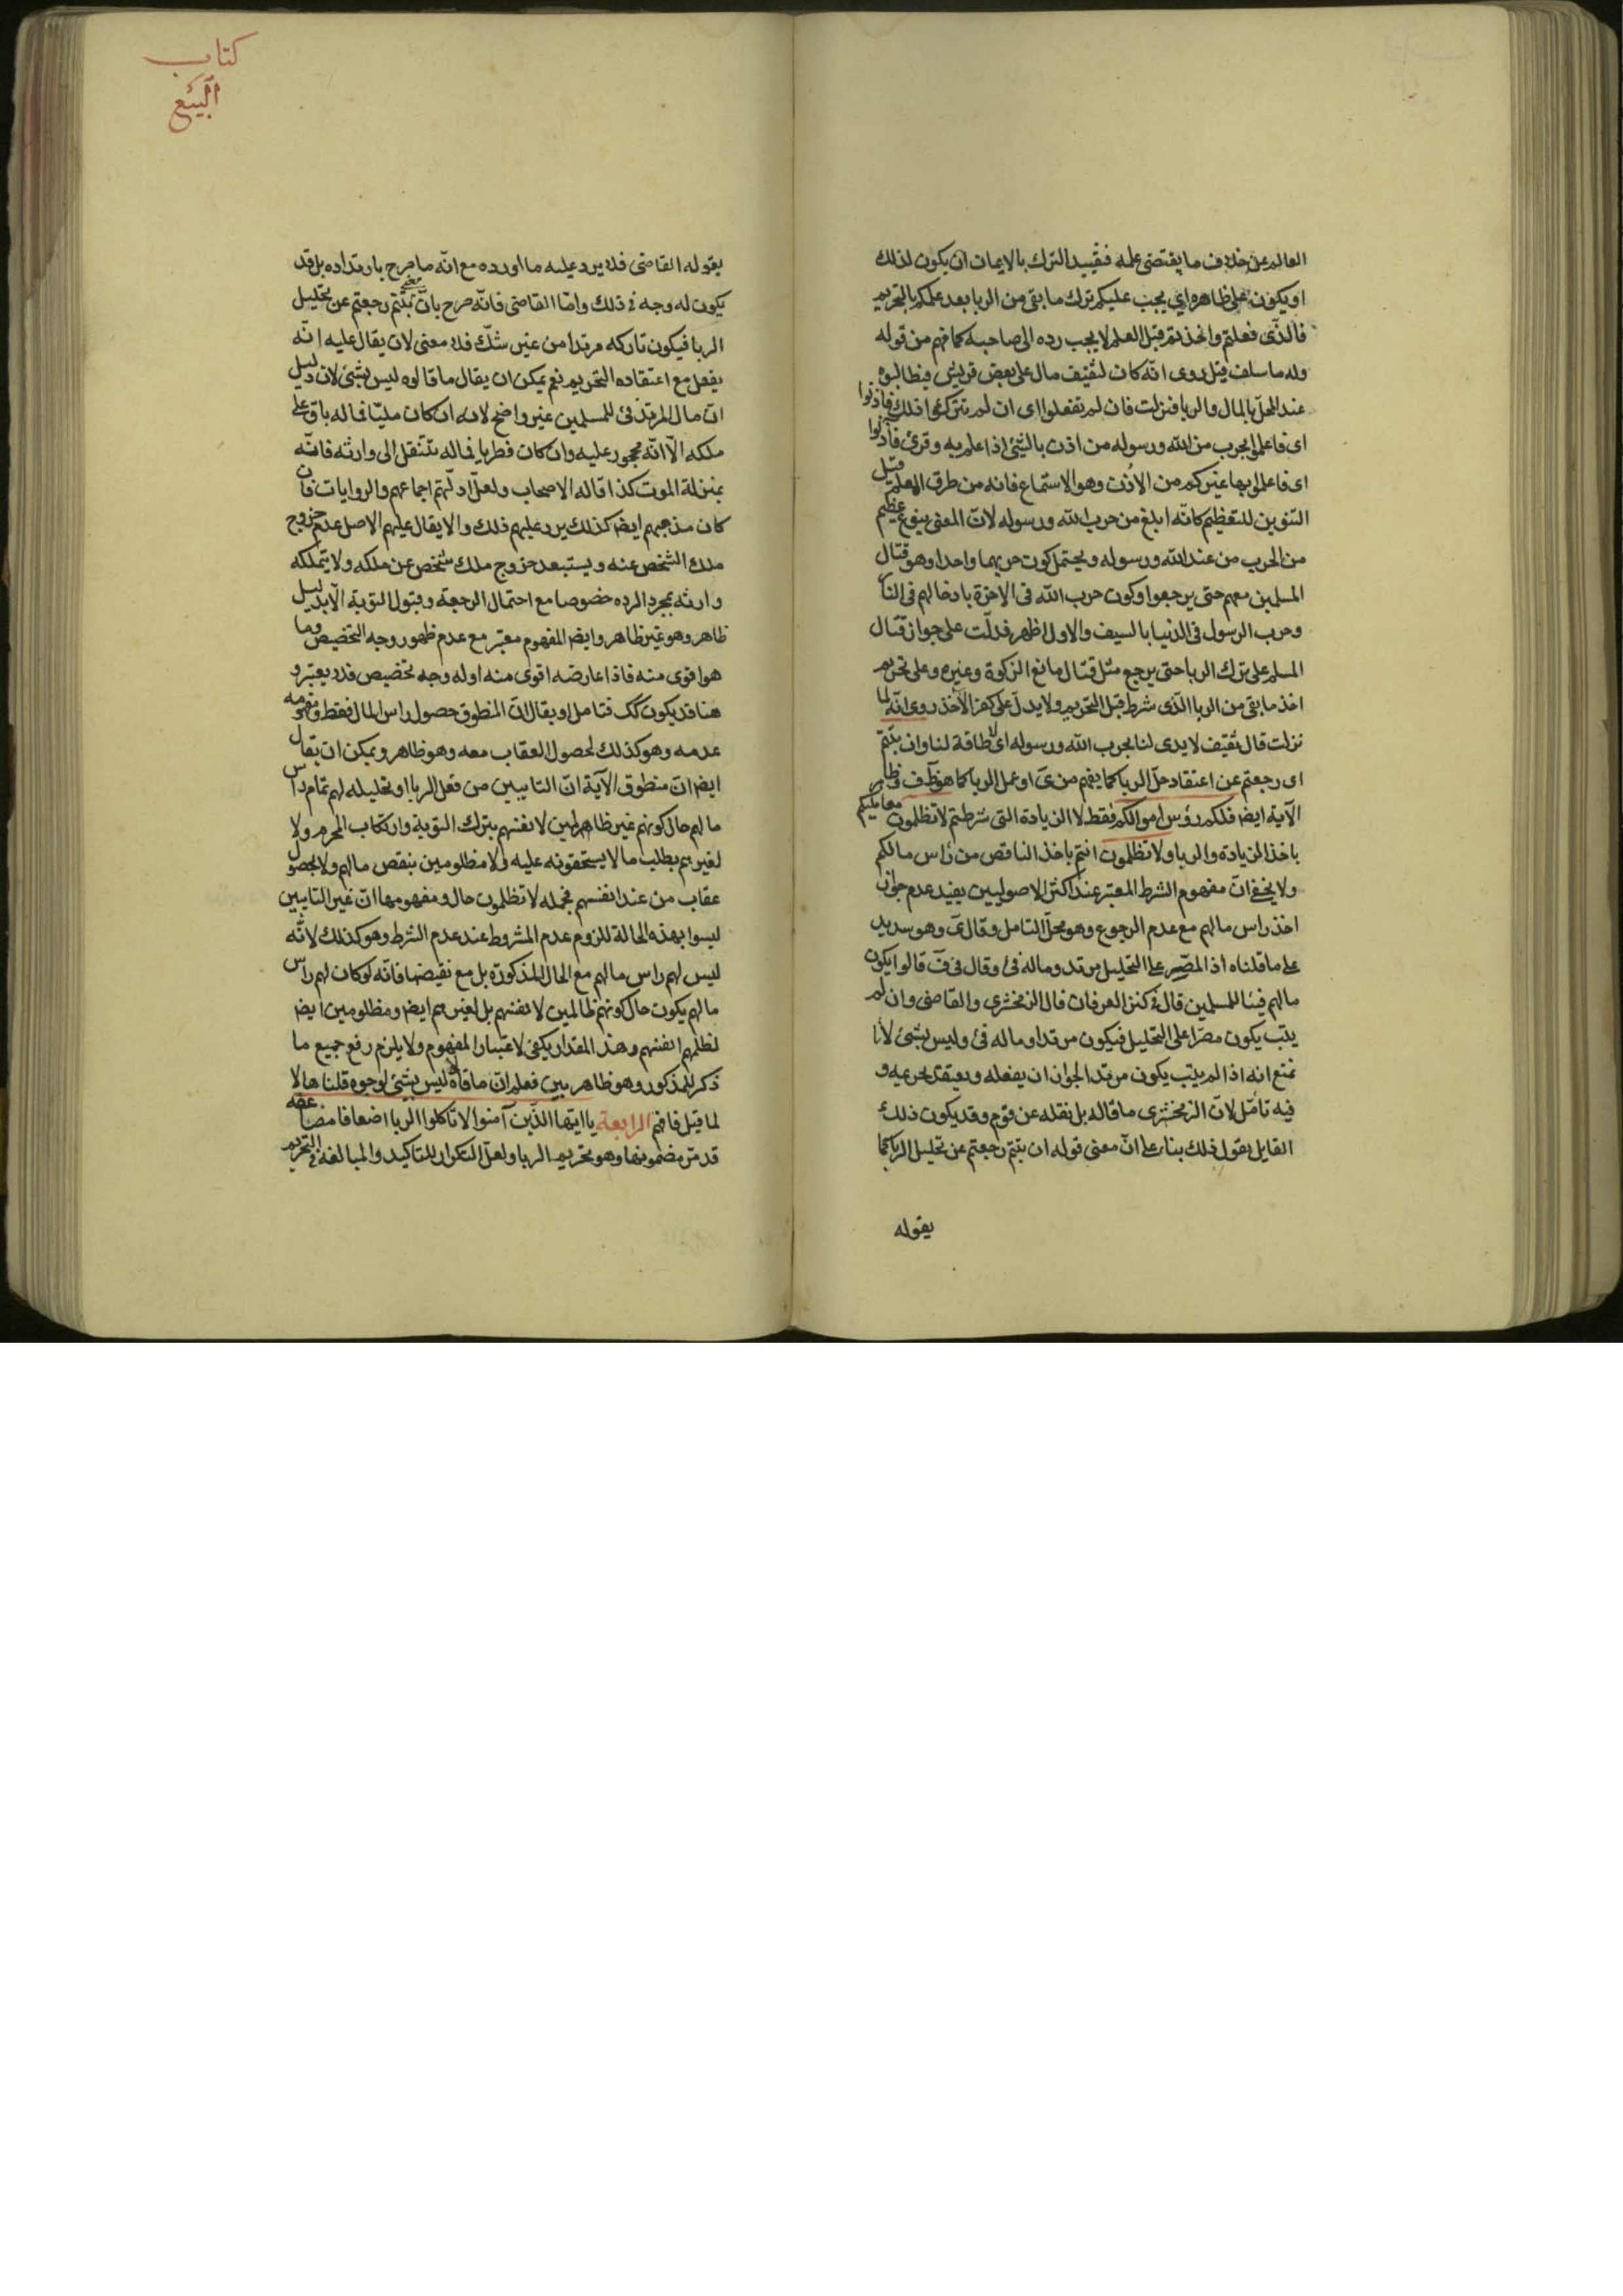 العالم عن خلاف ما يقتضى علمه فقييد الترك بالايمان ان يكون لذلك
او يكون على ظاهره اي يجب عليكم ترك ما بقى من الربا بعد علمكم بالتحريم
فالذى فعلتم واتخذتم قبل العلم لا يجب رده الى صاحبه كما فهم من قوله
وله ما سلف قيل روى انه كان لثقيف مال على بعض قريش فطالبوه
عند المحل بالمال والربا فنزلت فان لم تفعلوا اى ان لم تتركوا ذلك فاذنوا
اى فاعلموا بحرب من الله ورسوله من اذن بالشئ اذا علم به وقرئ فآذنوا
اى فاعلموا بها غيركم من الاذن وهو الاستماع فانه من طرق العلم قيل
التنوين للتعظيم كانه ابلغ من حرب الله ورسوله لان المعنى بنوع عظيم
من الحرب من عند الله ورسوله ويحتمل كون حربهما واحدا وهو قتال
المسلمين معهم حتى يرجعوا وكون حرب الله فى الاخرة بادخالهم فى النار
وحرب الرسول فى الدنيا بالسيف والاول اظهر فدلت على جواز قتال
المسلم على ترك الربا حتى يرجع مثل قتال مانع الزكوة وغيره وعلى تحريم
اخذ ما بقى من الربا الذى شرط قبل التحريم ولا يدل على كفر الآخذ روى انه لما
نزلت قال ثقيف لا يدى لنا بحرب الله ورسوله اى لا طاقة لنا وان تبتم
اى رجعتم عن اعتقاد حل الربا كما يفهم من ى او عمل الربا كما هو ظ ف وظاهر
الآية ايض فلكم رؤس اموالكم فقط لا الزيادة التى شرطتم لا تظلمون معامليكم
باخذ الزيادة والربا ولا تظلمون انتم باخذ الناقص من رأس مالكم
ولا يخفى ان مفهوم الشرط المعتبر عند اكثر الاصوليين يفيد عدم جواز
اخذ راس مالهم مع عدم الرجوع وهو محل التامل وقال ى وهو سديد
على ما قلناه اذ المصر على التحليل مرتد وماله فئ وقال فى ف قالوا يكون
مالهم فيئا للمسلمين قال فى كنز العرفان قال الزمخشرى والقاضى وان لم
يتب يكون مصرا على التحليل فيكون مرتدا وماله فئ وليس بشئ لانا
نمنع انه اذا لم يتب يكون مرتدا لجواز ان يفعله ويعتقد تحريمه و
فيه تأمل لان الزمخشرى ما قاله بل نقله عن قوم وقد يكون ذلك
القايل يقول ذلك بناء على ان معنى قوله ان تبتم رجعتم عن تحليل الربا كما
يقوله
كتاب
البيع
يقوله القاضى فلا يرد عليه ما اورده مع انه ما صرح بارتداده بل قد
يكون له وجه فى ذلك واما القاضى فانه صرح بان معنى تبتم رجعتم عن تحليل
الربا فيكون تاركه مرتدا من غير شك فلا معنى لان يقال عليه انه
يفعل مع اعتقاده التحريم نعم يمكن ان يقال ما قالوه ليس بشئ لان دليل
ان مال المرتد فئ للمسلمين غير واضح لانه ان كان مليا فماله باق على
ملكه الا انه محجور عليه وان كان فطريا فماله تنتقل الى وارثه فانه
بمنزلة الموت كذا قاله الاصحاب ولعل ادلتهم اجماعهم والروايات فان
كان مذهبهم ايض كذلك يرد عليهم ذلك والا يقال عليهم الاصل عدم خروج
ملك الشخص عنه ويستبعد خروج ملك شخص عن ملكه ولا يتملكه
وارثه بمجرد الرده خصوصا مع احتمال الرجعة وقبول التوبة الا بدليل
ظاهر وهو غير ظاهر وايض المفهوم معتبر مع عدم ظهور وجه التخصيص وما
هو اقوى منه فاذا عارضه اقوى منه او له وجه تخصيص فلا يعتبر و
هنا قد يكون كك فتامل او يقال ان المنطوق حصول راس المال فقط ومفهومه
عدمه وهو كذلك لحصول العقاب معه وهو ظاهر ويمكن ان يقال
ايض ان منطوق الآية ان التايبين من فعل الربا او تحليله لهم تمام راس
مالهم حال كونهم غير ظالمين لانفسهم بترك التوبة وارتكاب المحرم ولا
لغيرهم بطلب ما لا يستحقونه عليه ولا مظلومين بنقص مالهم ولا بحصول
عقاب من عند انفسهم فجملة لا تظلمون حال ومفهومها ان غير التايبين
ليسوا بهذه الحالة للزوم عدم المشروط عند عدم الشرط وهو كذلك لانه
ليس لهم راس مالهم مع الحال المذكورة بل مع نقيضها فانه لو كان لهم راس
مالهم يكون حال كونهم ظالمين لانفسهم بل لغيرهم ايض ومظلومين ايض
لظلمهم انفسهم وهذا المقدار يكفى لاعتبار المفهوم ولا يلزم رفع جميع ما
ذكر للمذكور وهو ظاهر بين فعلم ان ما قاله ليس بشئ لوجوه قلناها لا
لما قيل فافهم الرابعة يا ايها الذين آمنوا لا تاكلوا الربا اضعافا مضاعفه
قد مر مضمونها وهو تحريم الربا ولعل التكرار للتاكيد والمبالغة فى التحريم